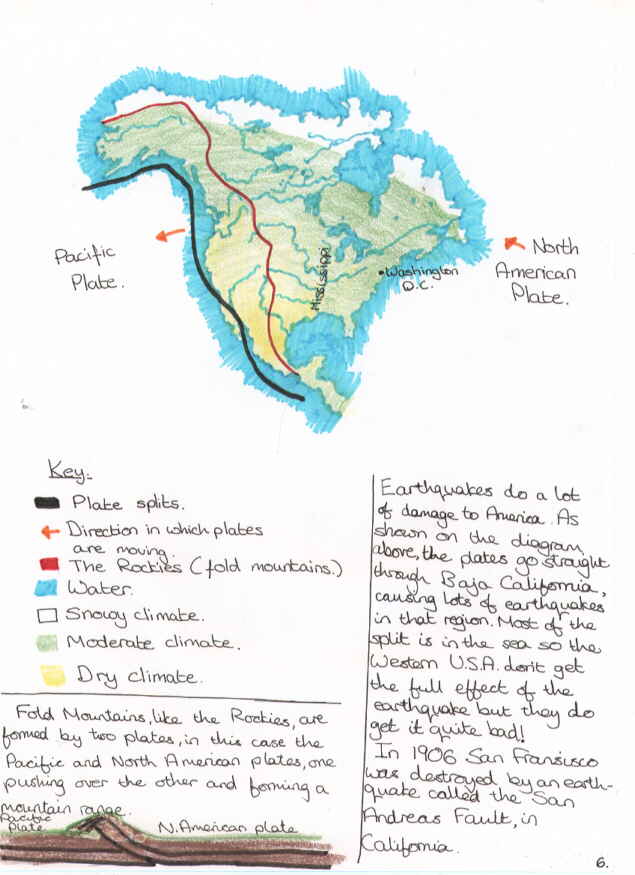 Pacific
Plate.
North
American
Plate.
Mississippi
Washington
D.C.
Key:
Plate splits.
Direction in which plates
are moving.
The Rockies (fold mountains.)
Water.
Snowy climate.
Moderate climate.
Dry climate.
Fold Mountains, like the Rockies, are
formed by two plates, in this case the
Pacific and North American plates, one
pushing over the other and forming a
mountain range.
Pacific
Plate
N.American plate
Earthquakes do a lot
of damage to America. As
shown on the diagram
above, the plates go straight
through Baja California,
causing lots of earthquakes
in that region. Most of the
split is in the sea so the
Western U.S.A. don't get
the full effect of the
earthquake but they do
get it quite bad!
In 1906 San Fransisco
was destroyed by an earth-
quake called the San
Andreas Fault, in
California.
6.